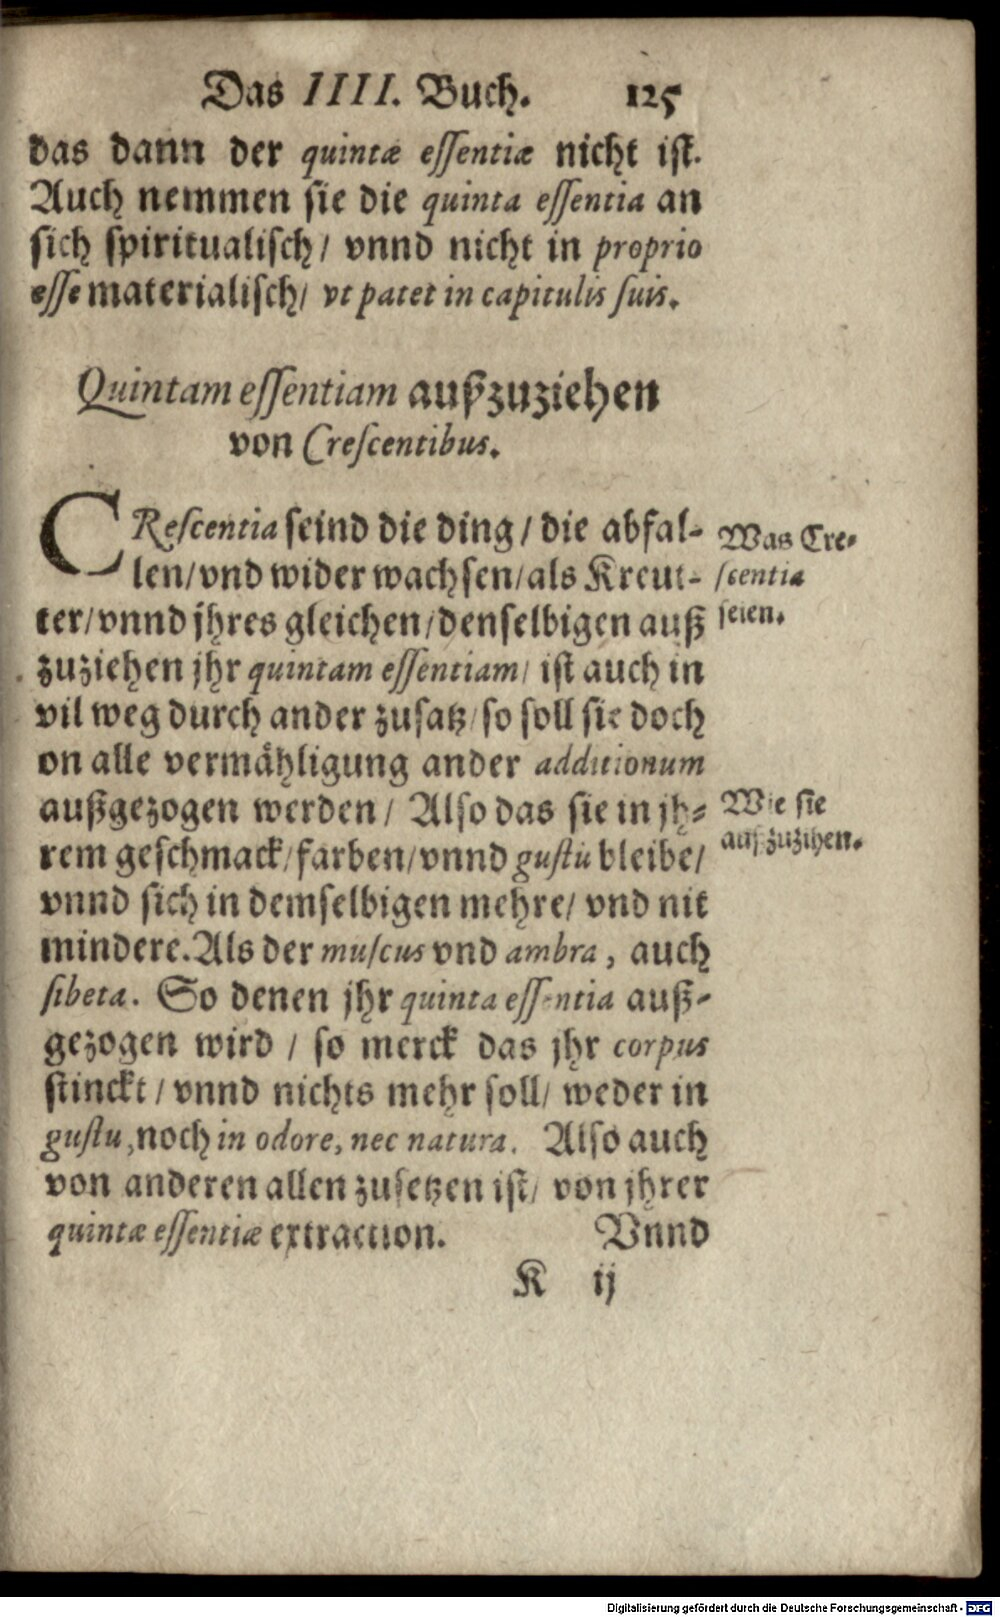 Das IIII. Buch. 125
das dann der quintæ essentiæ nicht ist.
Auch nemmen sie die quinta essentia an
sich spiritualisch/ vnnd nicht in proprio
esse materialisch/ vt patet in capitulis suis.
Quintam essentiam außzuziehen
von Crescentibus.
CRescentia seind die ding/ die abfal-
len/ vnd wider wachsen/ als Kreut-
ter/ vnnd jhres gleichen/ denselbigen auß
zuziehen jhr quintam essentiam/ ist auch in
vil weg durch ander zusatz/ so soll sie doch
on alle vermåhligung ander additionum
außgezogen werden/ Also das sie in jh-
rem geschmack/ farben/ vnnd gustu bleibe/
vnnd sich in demselbigen mehre/ vnd nit
mindere. Als der muscus vnd ambra, auch
sibeta. So denen jhr quinta essentia auß-
gezogen wird/ so merck das jhr corpus
stinckt/ vnnd nichts mehr soll/ weder in
gustu, noch in odore, nec natura. Also auch
von anderen allen zusetzen ist/ von jhrer
quintæ essentiæ extraction. Vnnd
K ij
Was Cre-
scentia
seien.
Wie sie
außzuzihen.
Digitalisierung gefördert durch die Deutsche Forschungsgemeinschaft - DFG